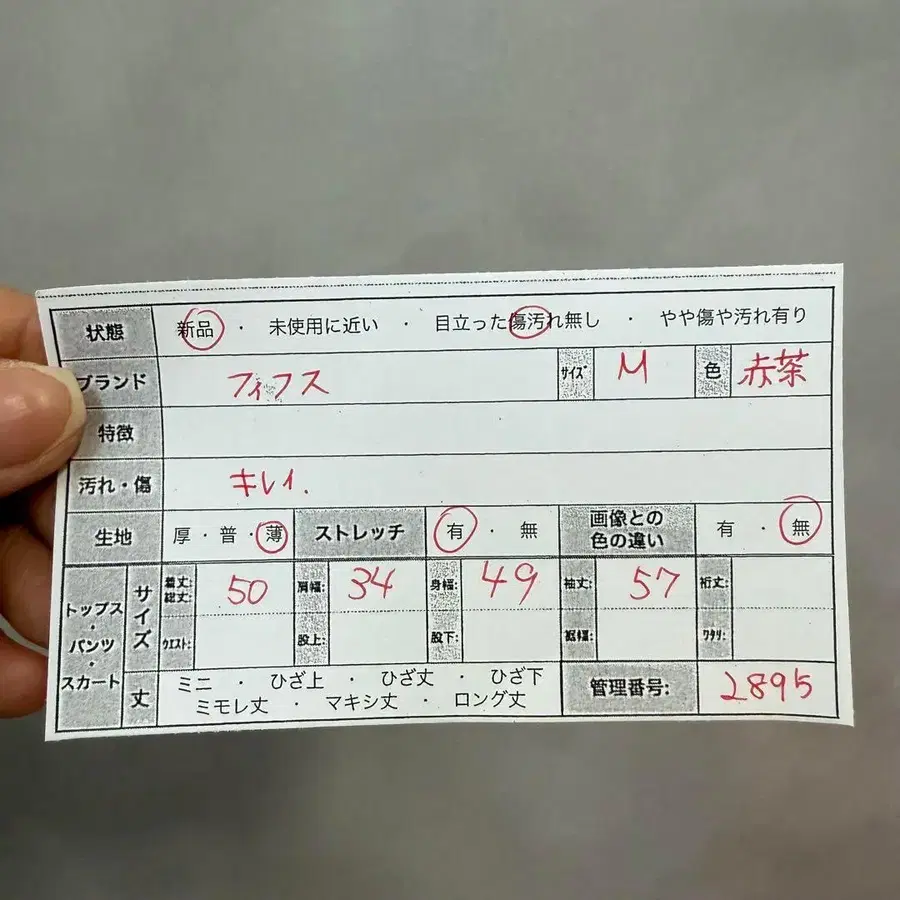 状態 新品 ・ 未使用に近い ・ 目立った傷汚れ無し ・ やや傷や汚れ有り
ブランド フィフス サイズ M 色 赤茶
特徴
汚れ・傷 キレイ.
生地 厚・普・薄 ストレッチ 有 ・ 無 画像との色の違い 有 ・ 無
トップス・パンツ・スカート サイズ 着丈:総丈: 50 肩幅: 34 身幅: 49 袖丈: 57 裄丈:
ウエスト: 股上: 股下: 裾幅: ワタリ:
丈 ミニ ・ ひざ上 ・ ひざ丈 ・ ひざ下
ミモレ丈 ・ マキシ丈 ・ ロング丈 管理番号: 2895